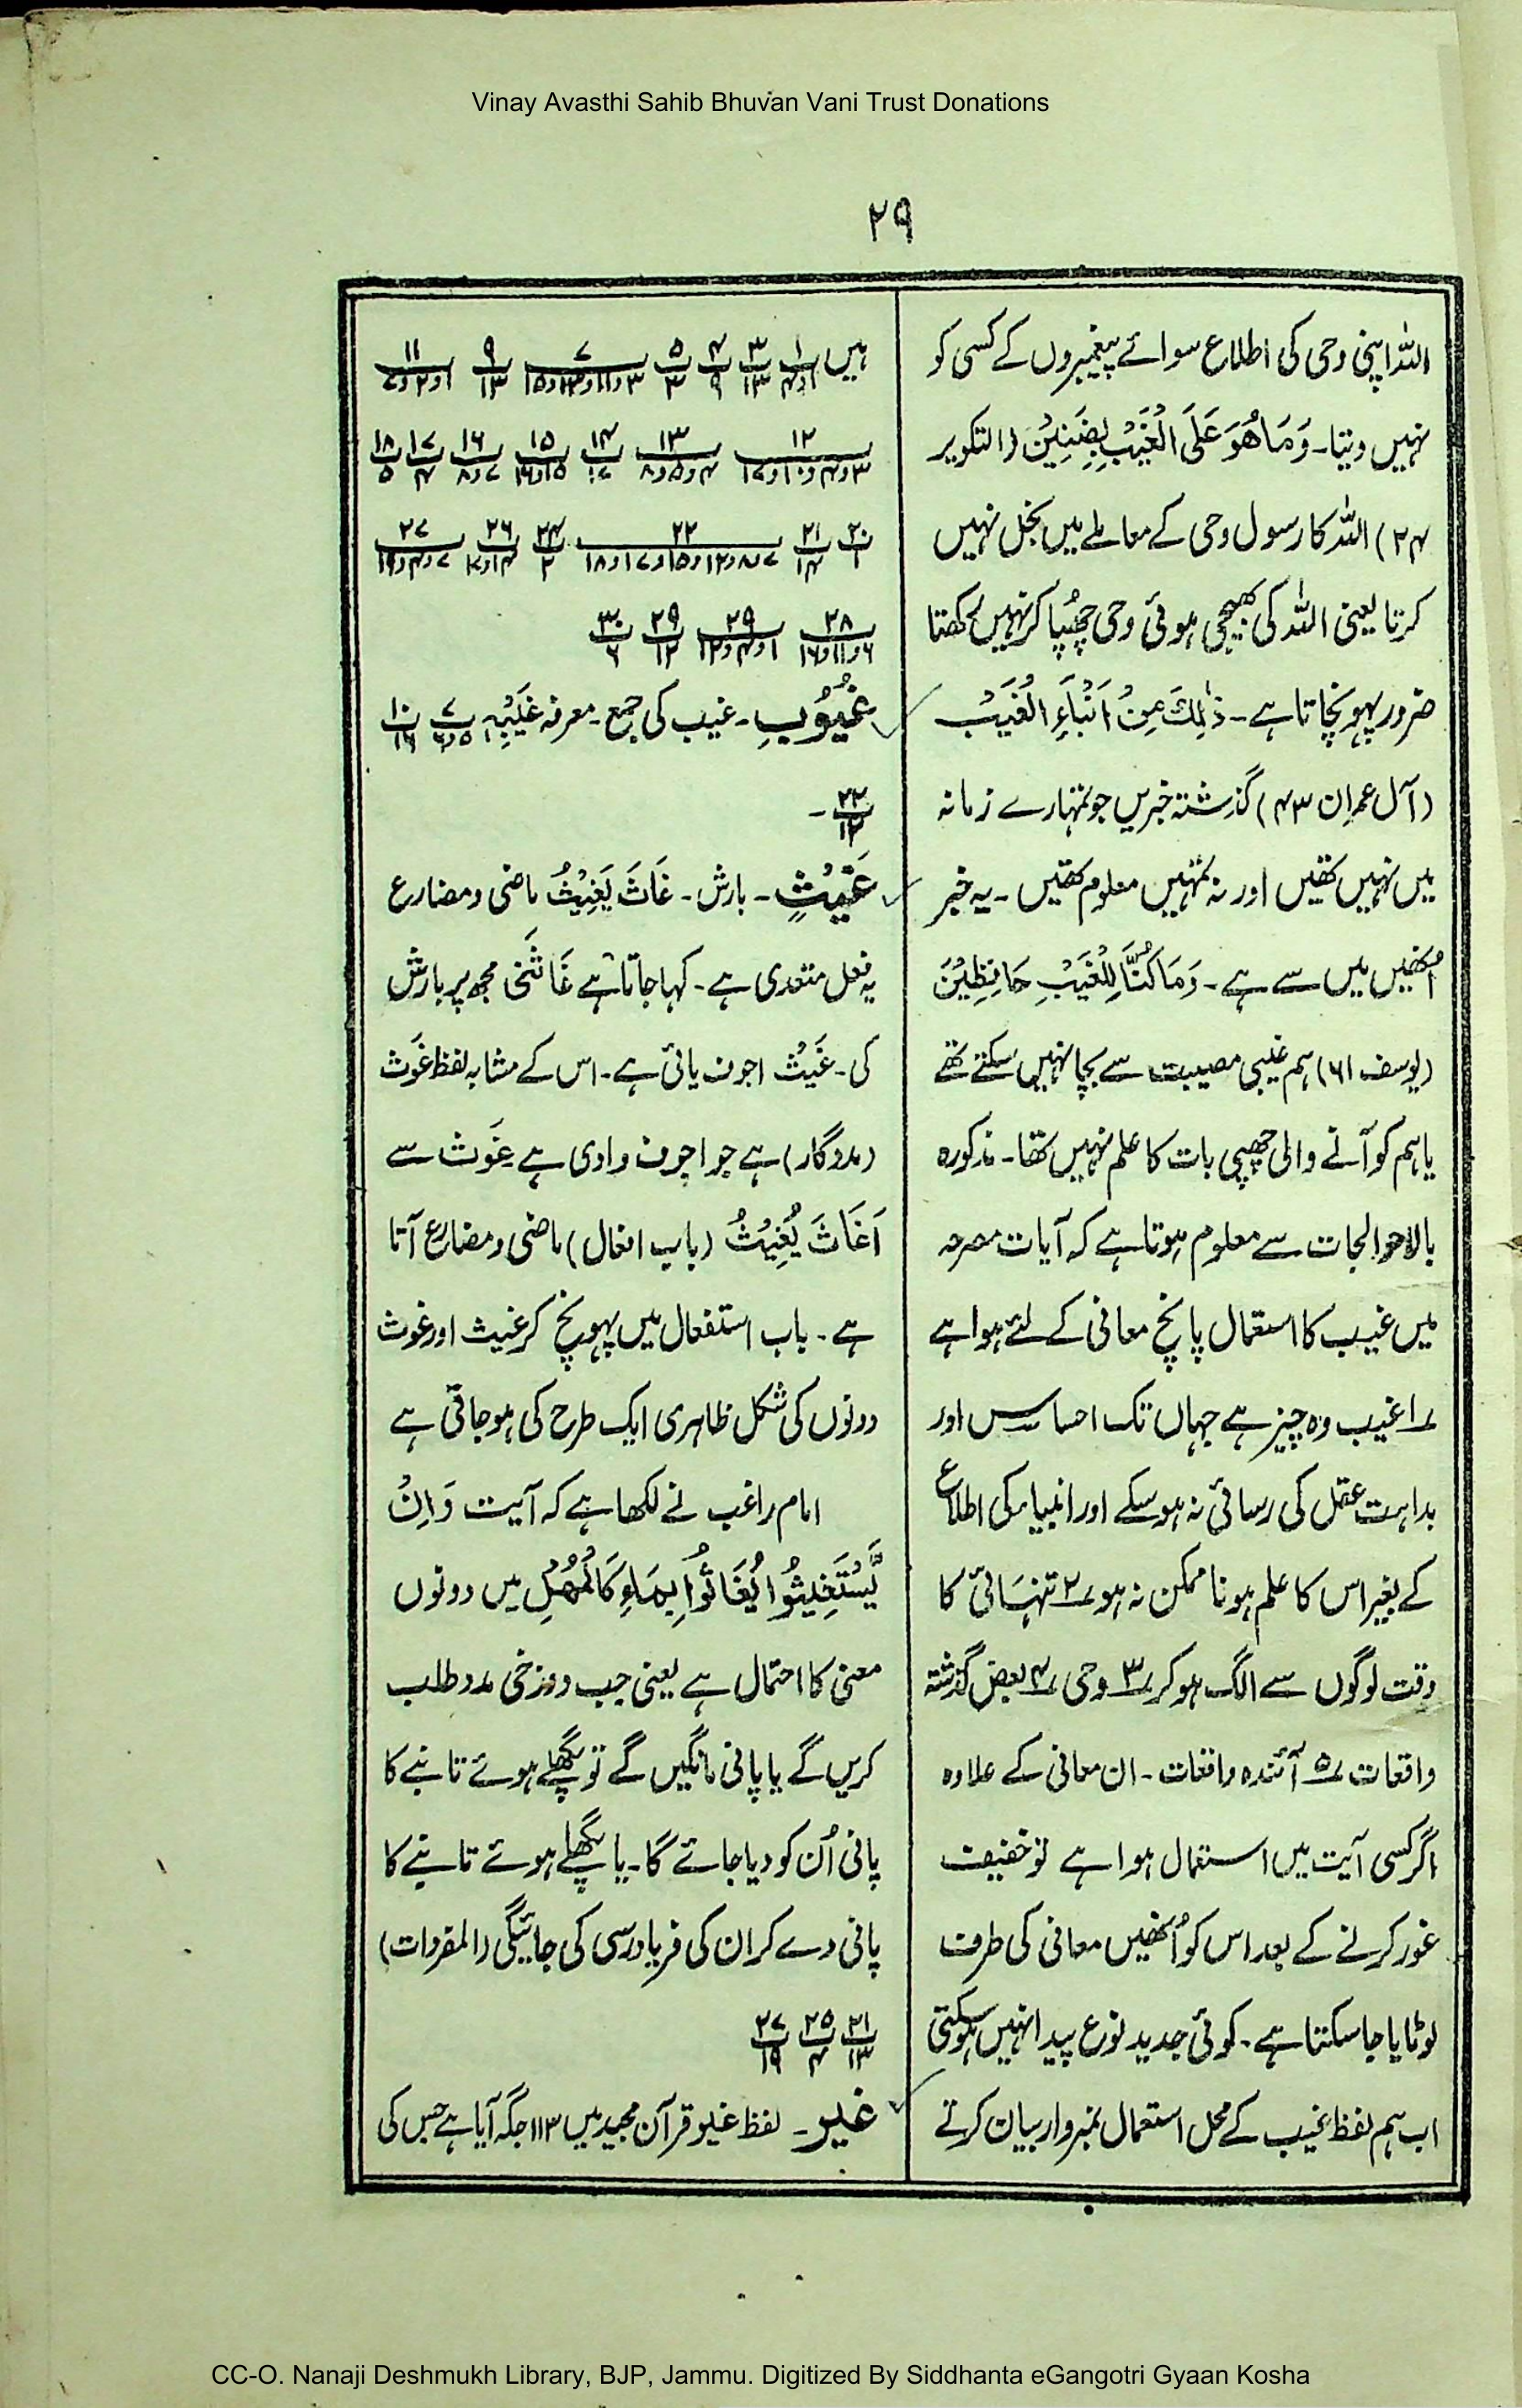 Vinay Avasthi Sahib Bhuvan Vani Trust Donations
۲۹
اللہ اپنی وحی کی اطلاع سوائے پیغمبروں کے کسی کو
نہیں دیتا۔ وَمَا هُوَ عَلَى الْغَيْبِ بِضَنِيْنٍ (التکویر
۲۴) اللہ کا رسول وحی کے معاملے میں بخل نہیں
کرتا یعنی اللہ کی بھیجی ہوئی وحی چھُپا کر نہیں رکھتا
ضرور پہونچاتا ہے۔ ذٰلِكَ مِنْ اَنْۢبَاءِ الْغَيْبِ
(آل عمران ۴۳) گذشتہ خبریں جو تمہارے زمانہ
میں نہیں تھیں اور نہ تمہیں معلوم تھیں۔ یہ خبر
اُنھیں میں سے ہے۔ وَمَا كُنَّا لِلْغَيْبِ حَافِظِيْنَ
(یوسف ۶۱) ہم غیبی مصیبت سے بچا نہیں سکتے تھے
یا ہم کو آنے والی چھپی بات کا علم نہیں تھا۔ مذکورہ
بالا حوالجات سے معلوم ہوتا ہے کہ آیات مصرحہ
میں غیب کا استعمال پانچ معانی کے لئے ہوا ہے
۱؎ غیب وہ چیز ہے جہاں تک احساس اور
بداہت عقل کی رسائی نہ ہو سکے اور انبیاء کی اطلاع
کے بغیر اس کا علم ہونا ممکن نہ ہو ۲؎ تنہائی کا
وقت لوگوں سے الگ ہو کر ۳؎ وحی ۴؎ بعض گذشتہ
واقعات ۵؎ آئندہ واقعات۔ ان معانی کے علاوہ
اگر کسی آیت میں استعمال ہوا ہے تو حقیقت
غور کرنے کے بعد اس کو اُنھیں معانی کی طرف
لوٹایا جا سکتا ہے۔ کوئی جدید نوع پیدا نہیں ہو سکتی
اب ہم لفظ غیب کے محل استعمال نمبروار بیان کرتے
ہیں ۱/۱و۴ ۳/۱۳ ۴/۹ ۵/۳ ۷/۳و۱۱و۱۳و۱۵ ۹/۱۳ ۱۱/۱و۲و۷
۱۲/۳و۴و۱۰و۱۷ ۱۳/۴و۵و۸ ۱۴/۱۷ ۱۵/۱۵و۱۶ ۱۶/۷و۸ ۱۷/۴ ۱۸/۵
۲۰/۱ ۲۱/۱۴ ۲۲/۷و۸و۱۲و۱۵و۱۷و۱۸ ۲۴/۲ ۲۶/۱۴و۱۷ ۲۷/۷و۴و۱۹
۲۸/۶و۱۱و۱۶ ۲۹/۱و۴و۱۲ ۲۹/۱۲ ۳۰/۶
غُيُوْبِ۔ غیب کی جمع۔ معرفہ غَيْبِهٖ ۷/۵و۶ ۱۰/۱۶
۲۲/۱۲۔
غَيْثٍ۔ بارش۔ غَاثَ يَغِيْثُ ماضی و مضارع
یہ فعل متعدی ہے۔ کہا جاتا ہے غَاثَنِی مجھ پر بارش
کی۔ غَيْث اجوف یائی ہے۔ اس کے مشابہ لفظ غَوث
(مددگار) ہے جو اجوف وادی ہے غَوث سے
اَغَاثَ يُغِيْثُ (باب افعال) ماضی و مضارع آتا
ہے۔ باب استفعال میں پہونچ کر غیث اور غوث
دونوں کی شکل ظاہری ایک طرح کی ہو جاتی ہے
امام راغب نے لکھا ہے کہ آیت وَاِنْ
يَّسْتَغِيْثُوْا يُغَاثُوْا بِمَاءٍ كَالْمُهْلِ میں دونوں
معنی کا احتمال ہے یعنی جب دوزخی مدد طلب
کریں گے یا پانی مانگیں گے تو پگھلے ہوئے تانبے کا
پانی اُن کو دیا جائے گا۔ یا پگھلے ہوئے تانبے کا
پانی دے کر ان کی فریاد رسی کی جائیگی (المفردات)
۲۱/۱۳ ۲۵/۴ ۲۷/۱۹
غیر۔ لفظ غیر قرآن مجید میں ۱۱۳ جگہ آیا ہے جس کی
CC-O. Nanaji Deshmukh Library, BJP, Jammu. Digitized By Siddhanta eGangotri Gyaan Kosha